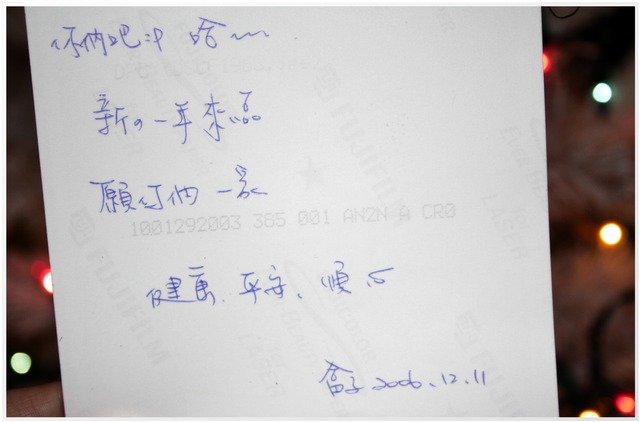 哈~~
新の一年來臨
願你們一家
1001292003 385 001 AN2N A CR0
健康、平安、順心
盒子 2006.12.11
FUJIFILM